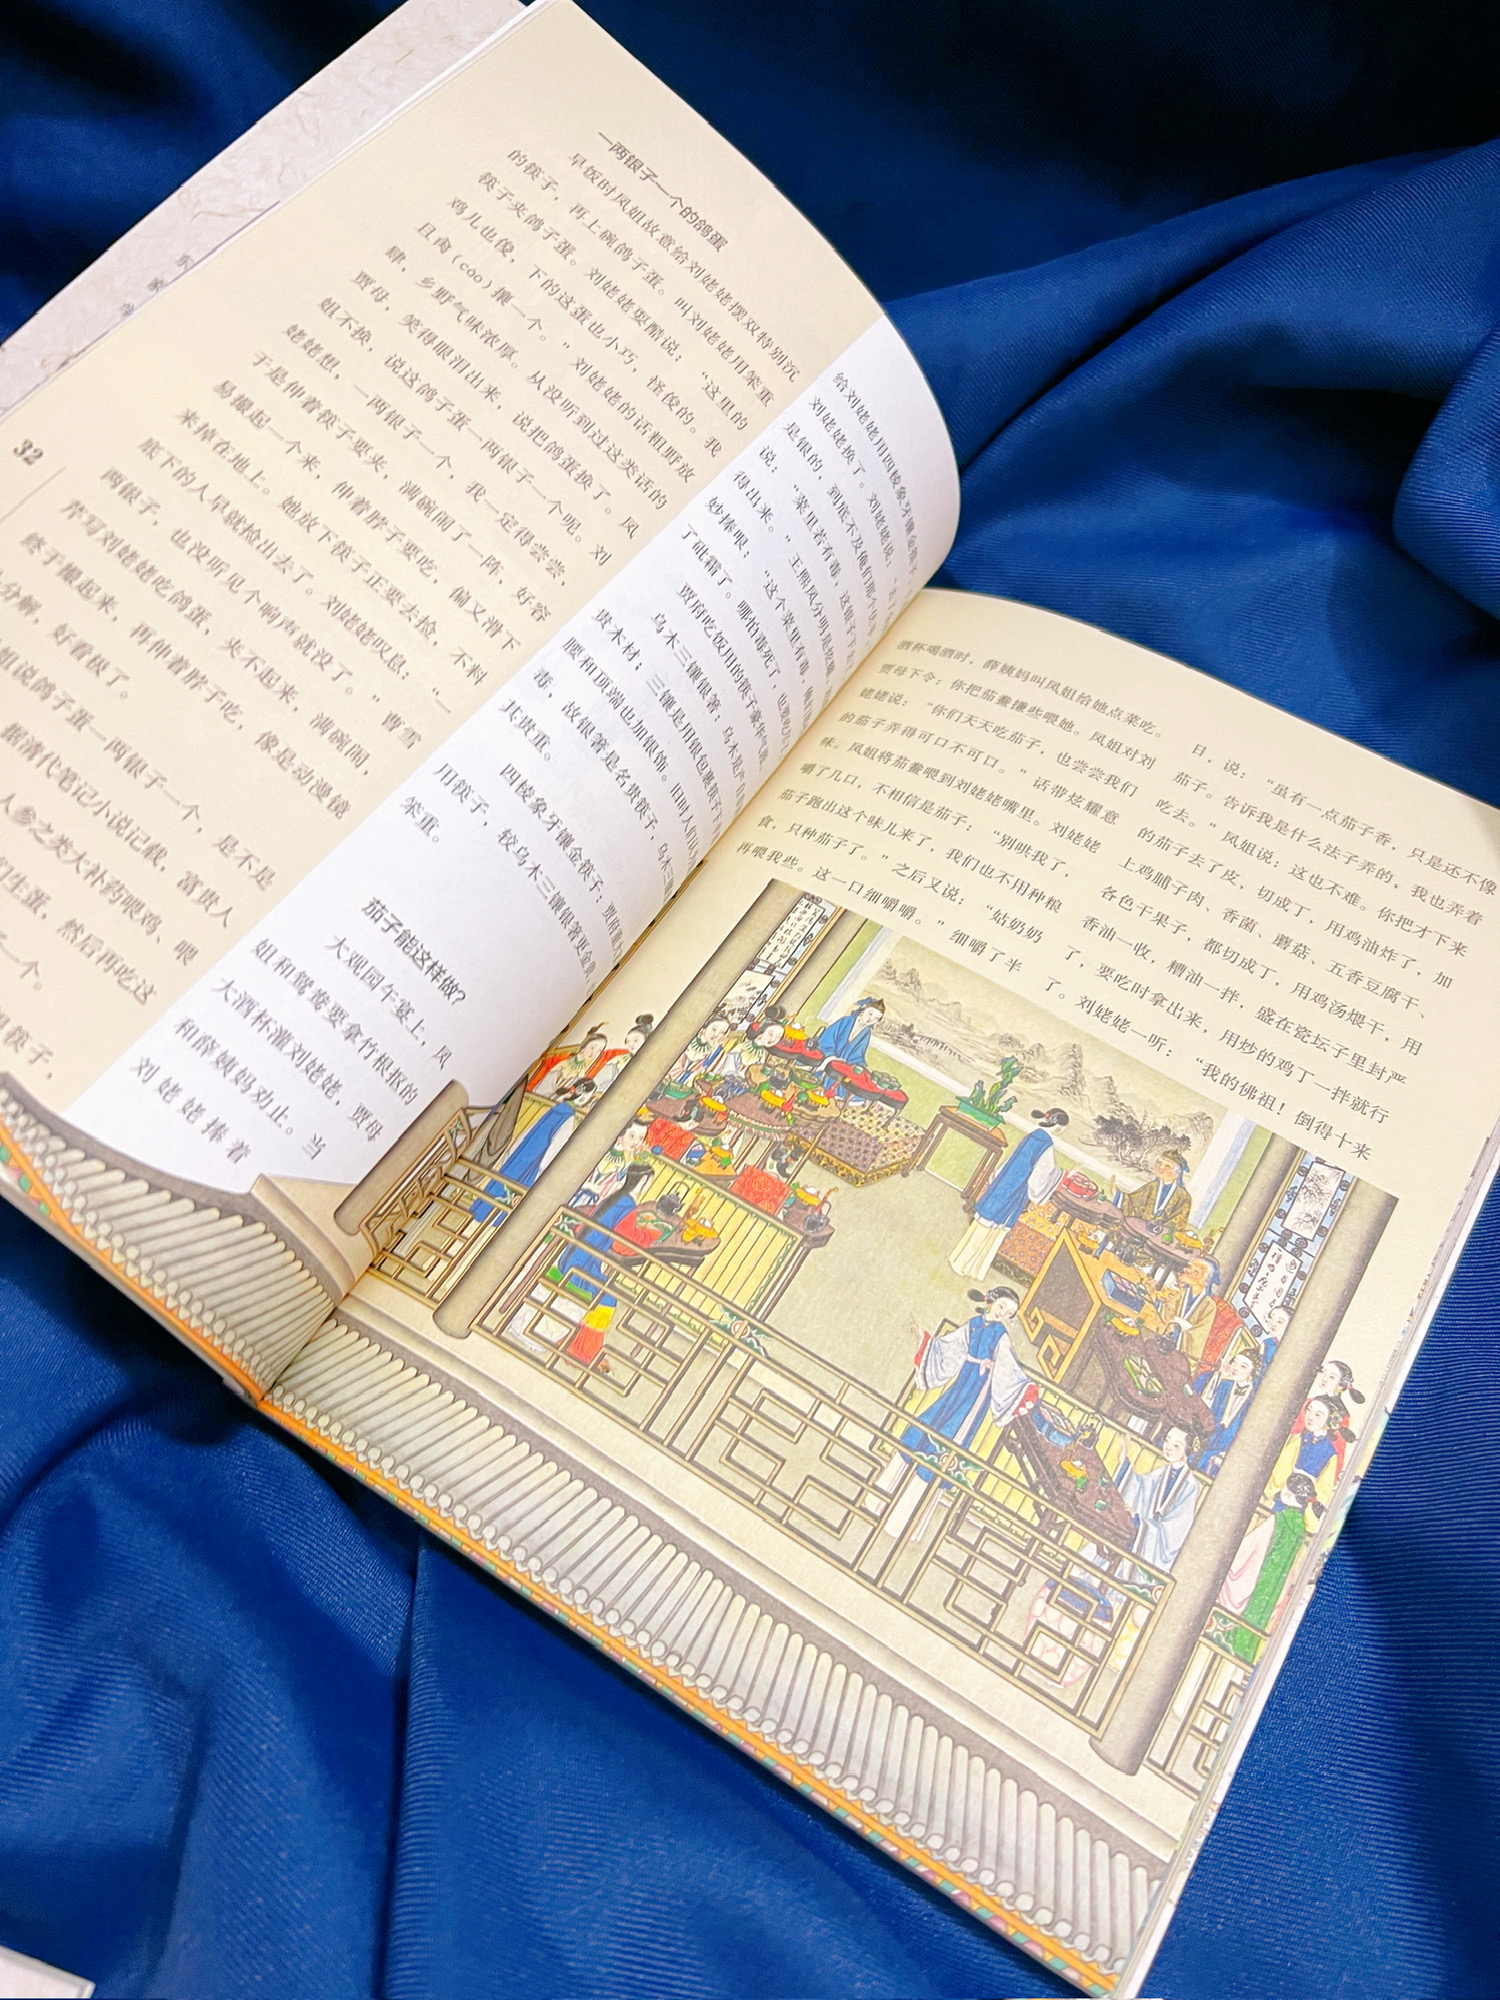 一两银子一个的鸽蛋
早饭时凤姐故意给刘姥姥摆双特别沉
的筷子，再上碗鸽子蛋。叫刘姥姥用笨重
筷子夹鸽子蛋。刘姥姥耍酷说：“这里的
鸡儿也俊，下的这蛋也小巧，怪俊的。我
且肏（cào）攮一个。”刘姥姥的话粗野放
肆，乡野气味浓厚。从没听到过这类话的
贾母，笑得眼泪出来，说把鸽蛋换了。凤
姐不换，说这鸽子蛋一两银子一个呢。刘
姥姥想，一两银子一个，我一定得尝尝，
于是伸着筷子要夹，满碗闹了一阵，好容
易撮起一个来，伸着脖子要吃，偏又滑下
来掉在地上。她放下筷子正要去捡，不料
底下的人早就捡出去了。刘姥姥叹息：“一
两银子，也没听见个响声就没了。”曹雪
芹写刘姥姥吃鸽蛋，夹不起来，满碗闹，
终于撮起来，再伸着脖子吃，像是动漫镜
分解，好看极了。
姐说鸽子蛋一两银子一个，是不是
据清代笔记小说记载，富贵人
人参之类大补药喂鸡、喂
们生蛋，然后再吃这
一个。
筷子，
32
给刘姥姥用四棱象牙镶金筷子
刘姥姥换了。刘姥姥说：
是银的，到底不及俺们那个伏手
说：“菜里若有毒，这银子下去了
得出来。”
妙捧哏：“这个菜里有毒，
了砒霜了。哪怕毒死了，也要吃尽
贾府吃饭用的筷子豪华气派。
乌木三镶银箸：乌木是产自
贵木材；三镶是用银包裹筷子下
腰和顶端也加银饰。旧时人们认为
毒，故银箸是名贵筷子，乌木三镶
其贵重。
四棱象牙镶金筷子：贾府重
用筷子，较乌木三镶银箸更金贵、
笨重。
茄子能这样做？
大观园午宴上，凤
姐和鸳鸯要拿竹根抠的
大酒杯灌刘姥姥，贾母
和薛姨妈劝止。当
刘姥姥捧着
酒杯喝酒时，薛姨妈叫凤姐给她点菜吃。
贾母下令：你把茄鲞搛些喂她。凤姐对刘
姥姥说：“你们天天吃茄子，也尝尝我们
的茄子弄得可口不可口。”话带炫耀意
味。凤姐将茄鲞喂到刘姥姥嘴里。刘姥姥
嚼了几口，不相信是茄子：“别哄我了，
茄子跑出这个味儿来了，我们也不用种粮
食，只种茄子了。”之后又说：“姑奶奶
再喂我些。这一口细嚼嚼。”细嚼了半
日，说：“虽有一点茄子香，只是还不像
茄子。告诉我是什么法子弄的，我也弄着
吃去。”凤姐说：这也不难。你把才下来
的茄子去了皮，切成丁，用鸡油炸了，加
上鸡脯子肉、香菌、蘑菇、五香豆腐干、
各色干果子，都切成丁，用鸡汤煨干，用
香油一收，糟油一拌，盛在瓷坛子里封严
了，要吃时拿出来，用炒的鸡丁一拌就行
了。刘姥姥一听：“我的佛祖！倒得十来